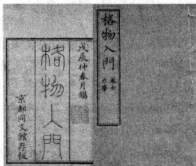 格物入門
戊辰仲春月鐫
格物入門
京都同文館存板